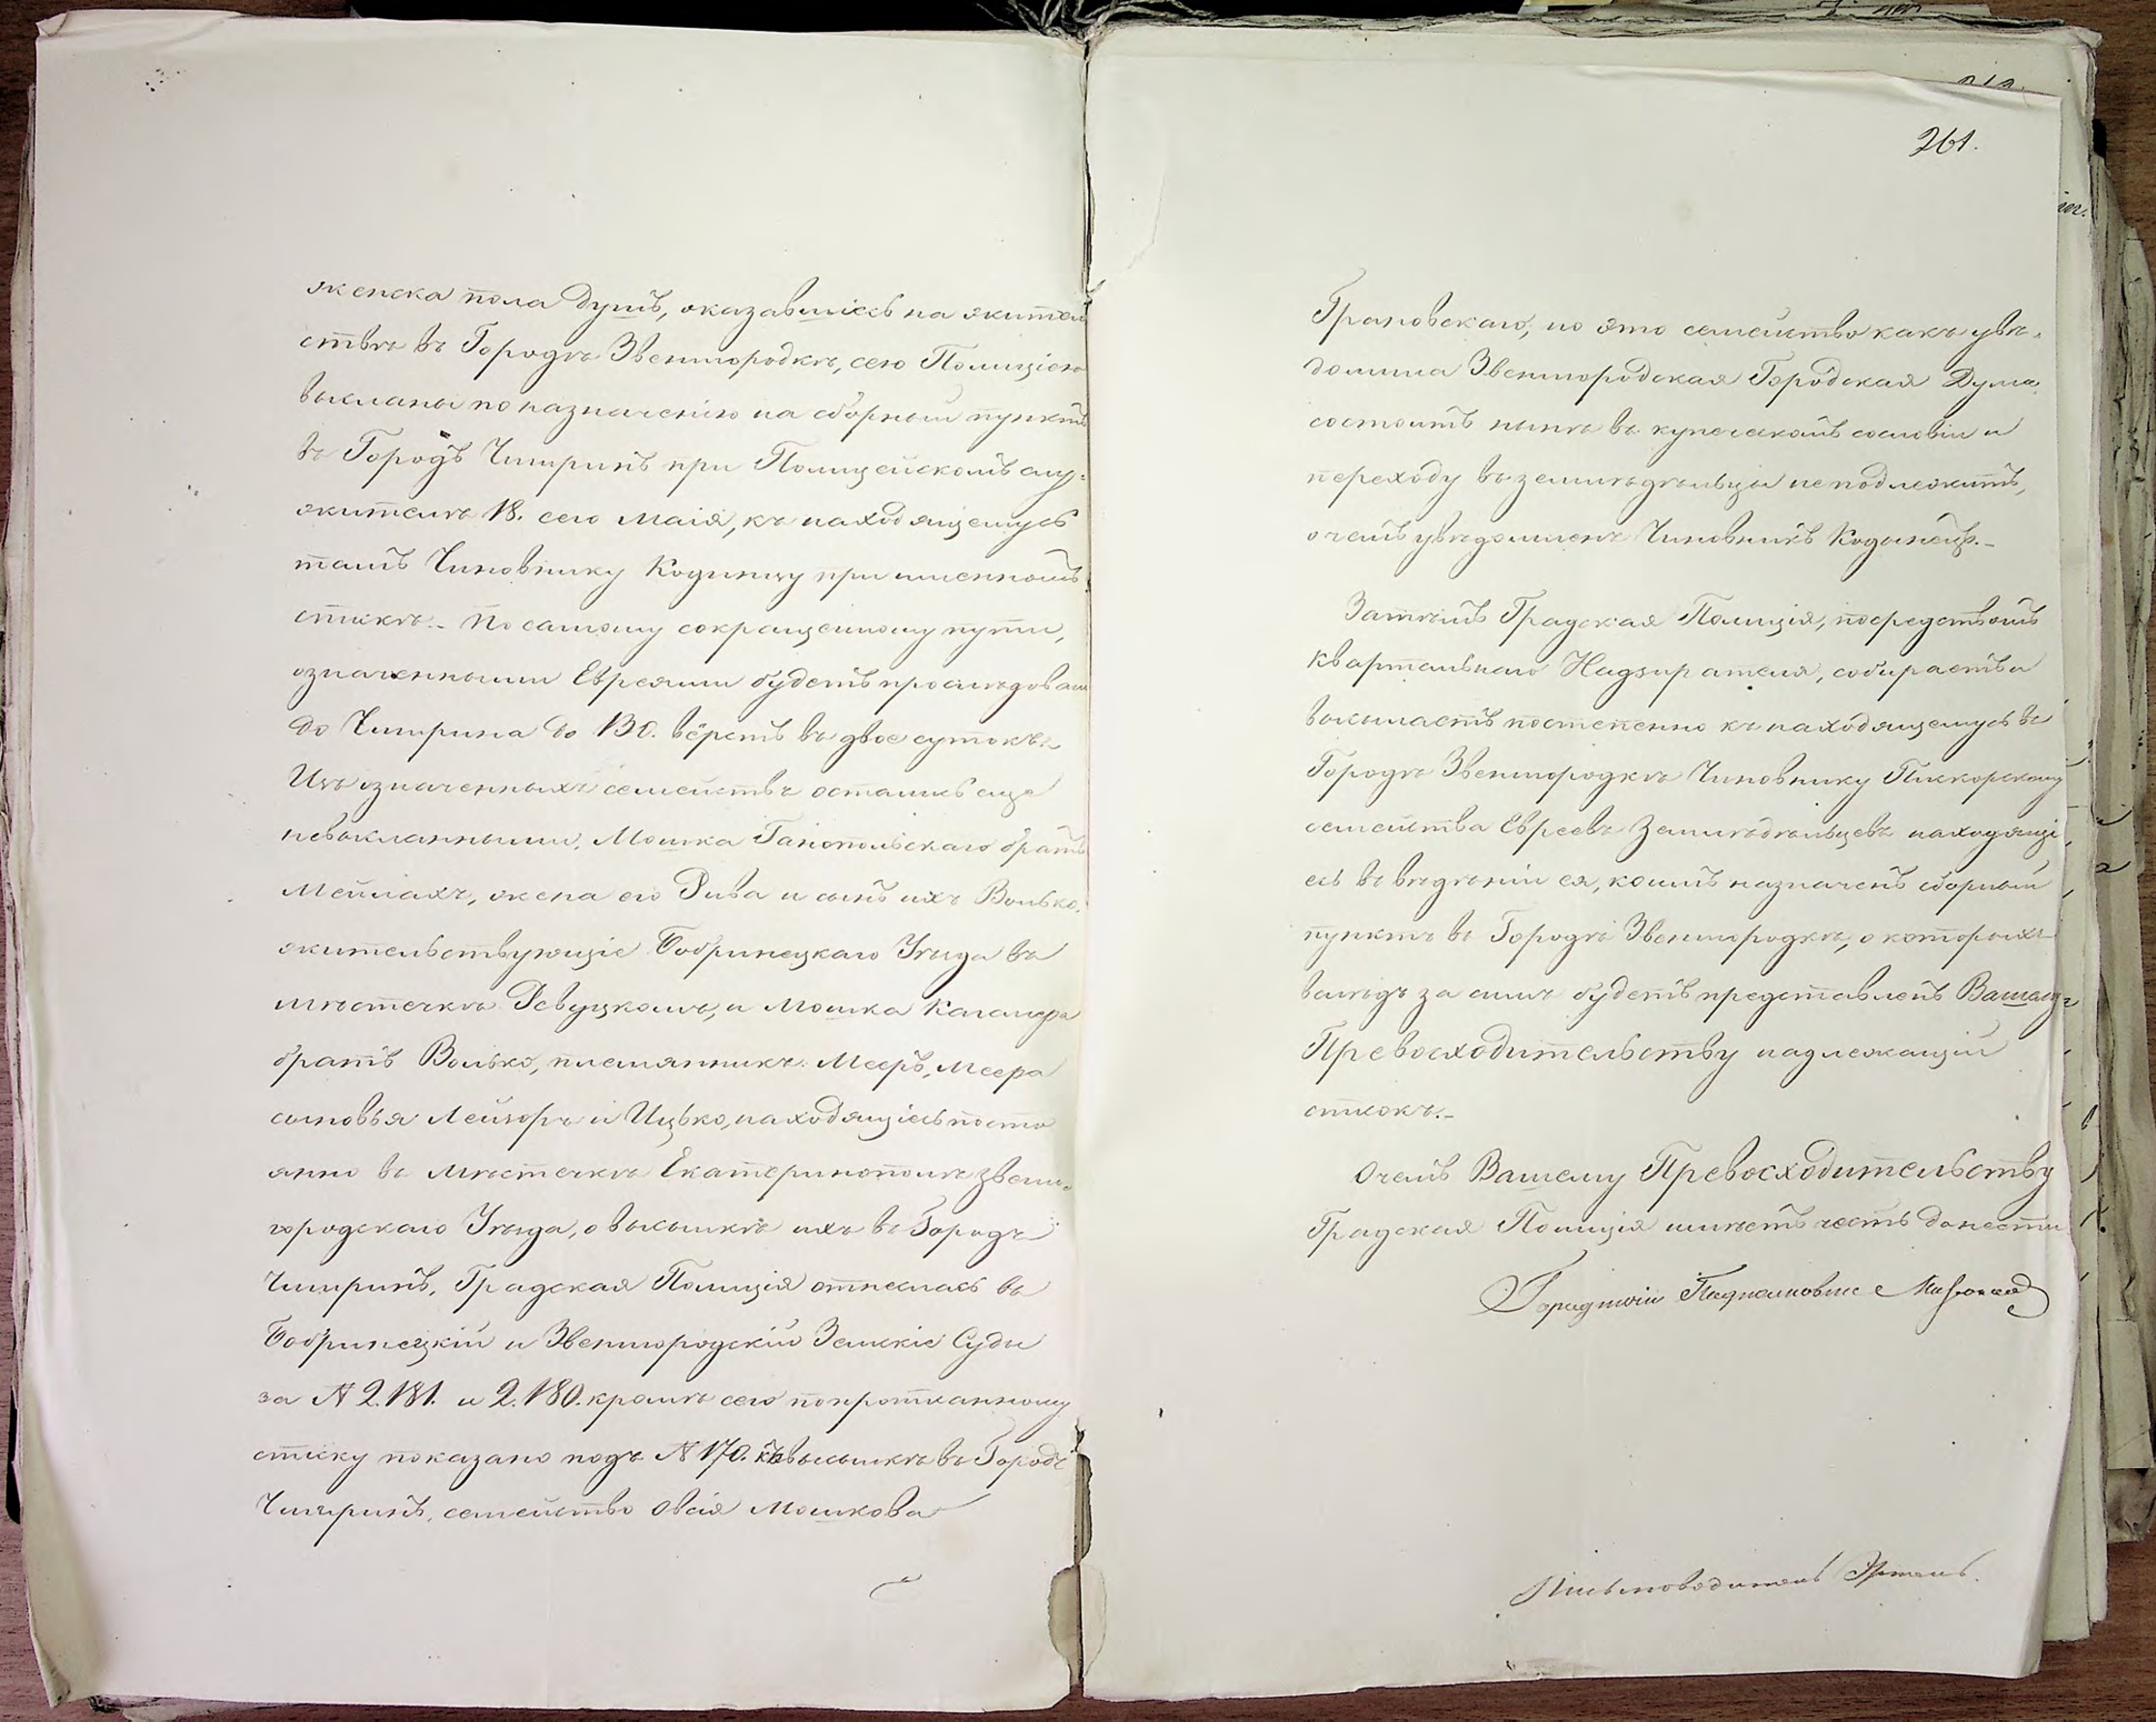 женска пола душъ, оказавшіесь на житель
ствѣ въ Городѣ Звенигородкѣ, сею Полиціею
высланы по назначенію на сборный пунктъ
въ Городъ Чигиринъ при Полицейскомъ слу-
жителѣ 18. сего Маія, къ находящемуся
тамъ Чиновнику Кодинцу при именномъ
спискѣ.- По самому сокращенному пути,
означенными Евреями будетъ прослѣдован
до Чигирина до 130. верстъ въ двое сутокъ.-
Изъ означенныхъ семействъ остались еще
невысланными, Мошка Гайнопольскаго братъ
Мейлахъ, жена его Рива и сынъ ихъ Волько.
жительствующіе Бобринецкаго Уѣзда въ
мѣстечкѣ Ревуцкомъ, и Мошка
братъ Волько, племянникъ Мееръ, Меера
сыновья Лейзоръ и Ицько, находящіесь посто
янно въ мѣстечкѣ Екатеринополѣ Звени-
городскаго Уѣзда, о высылкѣ ихъ въ Городъ
Чигиринъ, Градская Полиція отнеслась въ
Бобринецкій и Звенигородскій Земскіе Суды
за № 2.181. и 2.180. кромѣ сего по
списку показано подъ № 170. къ высылкѣ въ Городъ
Чигиринъ, семейство Овсія Мошкова
261.
Грановскаго, но это семейство какъ увѣ-
домила Звенигородская Городская Дума,
состоитъ нынѣ въ купеческомъ сословіи и
переходу въ земледѣльцы не подлежитъ,
о чемъ увѣдомленъ Чиновникъ Кодынецъ.-
Затѣмъ Градская Полиція, посредствомъ
Квартальнаго Надзирателя, собираетъ и
высылаетъ постепенно къ находящемусь въ
Городѣ Звенигородкѣ Чиновнику Пискорскому
семейства Евреевъ Земледѣльцевъ находящі
есь въ вѣдѣніи ея, коимъ назначенъ сборный
пунктъ въ Городѣ Звенигородкѣ, о которыхъ
вслѣдъ за симъ будетъ представленъ Вашему
Превосходительству надлежащій
списокъ.-
О чемъ Вашему Превосходительству
Градская Полиція имѣетъ честь донести
Городничій Подполковникъ
Письмоводитель